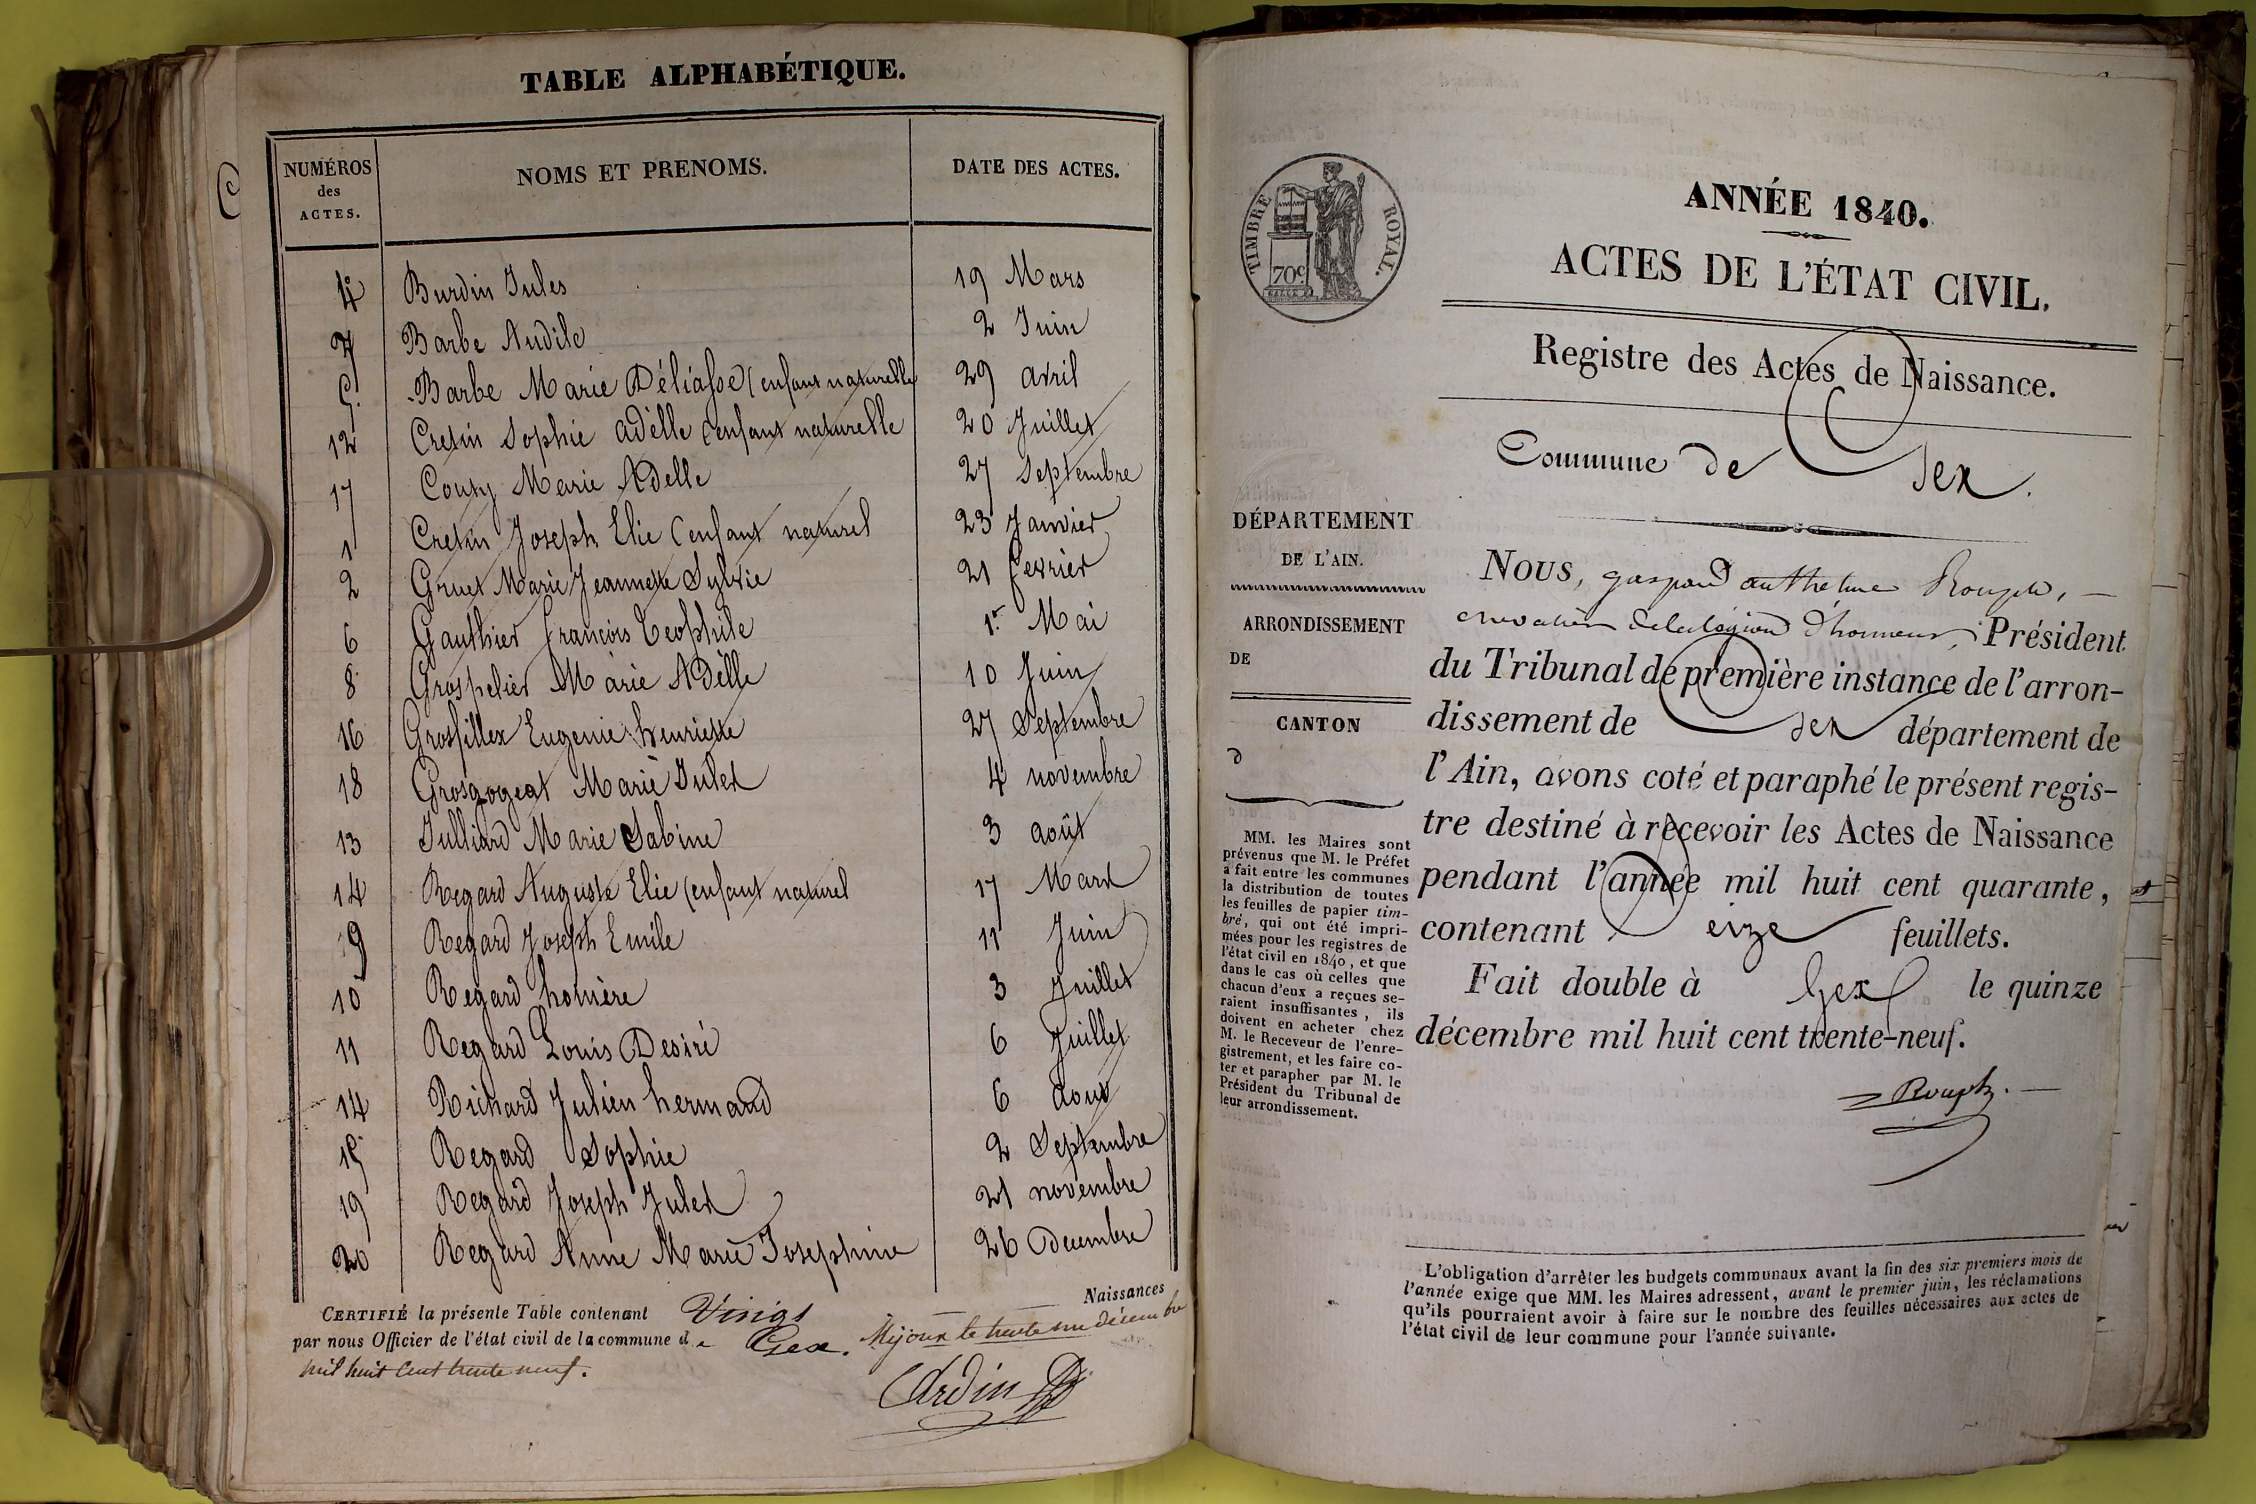 TABLE ALPHABÉTIQUE.
NUMÉROS des ACTES. NOMS ET PRENOMS. DATE DES ACTES.
4 Burdin Jules 19 Mars
7 Barbe Audile 2 Juin
5 Barbe Marie (enfant naturelle 29 avril
12 Cretin Sophie adèlle (enfant naturelle 20 Juillet
17 Couty Marie Adelle 27 Septembre
1 Cretin Joseph Elie (enfant naturel 23 Janvier
2 Gruet Marie Jeannette Sylvie 21 fevrier
6 Gauthier francois Teophile 1er Mai
8 Grospelier Marie Adèlle 10 Juin
16 Grosfillex Eugenie henriette 27 Septembre
18 Grosgogeat Marie Jules 4 novembre
13 Julliard Marie Sabine 3 août
14 Regard Auguste Elie (enfant naturel 17 Mars
9 Regard Joseph Emile 11 Juin
10 Regard homère 3 Juillet
11 Regard Louis Desiré 6 Juillet
14 Richard Julien hermand 6 aout
15 Regard Sophie 2 Septembre
19 Regard Joseph Jules 21 novembre
20 Regard Anne Marie Josephine 26 Decembre
CERTIFIÉ la présente Table contenant Vingt Naissances
par nous Officier de l'état civil de la commune de Gex. le trente un décembre
mil huit cent trente neuf.
TIMBRE ROYAL.
70c
ANNÉE 1840.
ACTES DE L'ÉTAT CIVIL.
Registre des Actes de Naissance.
Commune de Gex.
DÉPARTEMENT
DE L'AIN.
ARRONDISSEMENT
DE
CANTON
d
MM. les Maires sont
prévenus que M. le Préfet
a fait entre les communes
la distribution de toutes
les feuilles de papier tim-
bré, qui ont été impri-
mées pour les registres de
l'état civil en 1840, et que
dans le cas où celles que
chacun d'eux a reçues se-
raient insuffisantes, ils
doivent en acheter chez
M. le Receveur de l'enre-
gistrement, et les faire co-
ter et parapher par M. le
Président du Tribunal de
leur arrondissement.
NOUS, gaspard anthelme
chevalier de la légion d'honneur, Président
du Tribunal de première instance de l'arron-
dissement de Gex département de
l'Ain, avons coté et paraphé le présent regis-
tre destiné à recevoir les Actes de Naissance
pendant l'année mil huit cent quarante,
contenant seize feuillets.
Fait double à Gex le quinze
décembre mil huit cent trente-neuf.
L'obligation d'arrêter les budgets communaux avant la fin des six premiers mois de
l'année exige que MM. les Maires adressent, avant le premier juin, les réclamations
qu'ils pourraient avoir à faire sur le nombre des feuilles nécessaires aux actes de
l'état civil de leur commune pour l'année suivante.